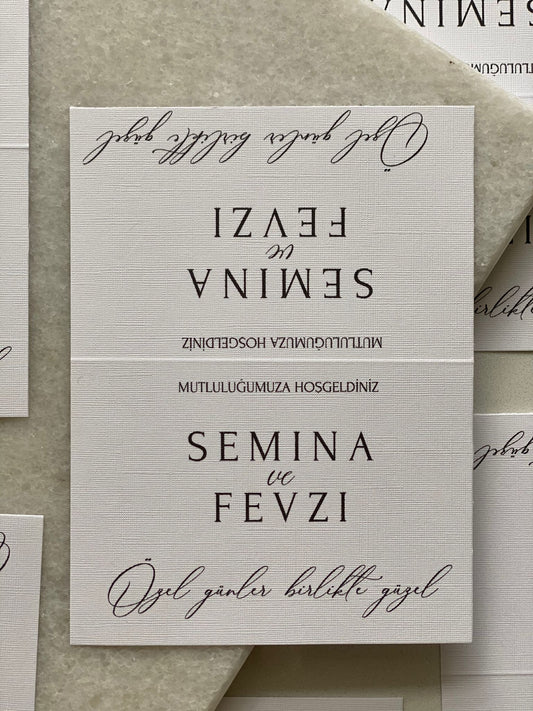 SEMINA
MUTLULUĞUMUZA
Özel günler birlikte güzel
FEVZI
ve
SEMINA
MUTLULUĞUMUZA HOŞGELDİNİZ
MUTLULUĞUMUZA HOŞGELDİNİZ
SEMINA
ve
FEVZI
Özel günler birlikte güzel
birlikte
güzel